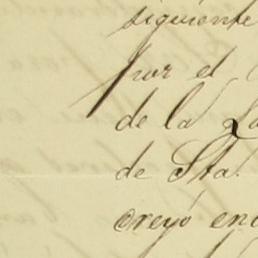 siguiente
por el
de la
de Sta.
creyó en